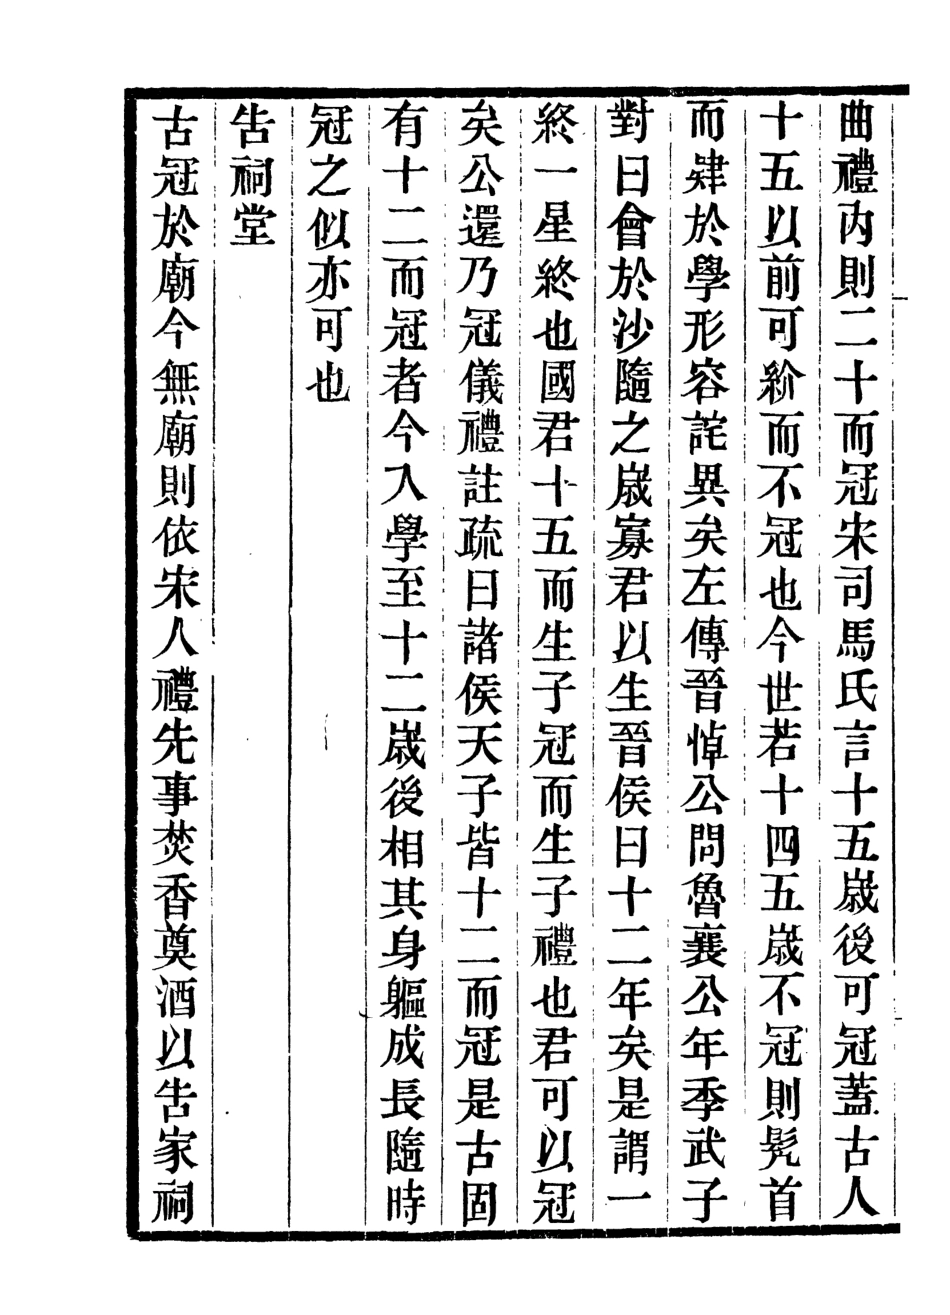 曲禮内則二十而冠宋司馬氏言十五嵗後可冠蓋古人
十五以前可紒而不冠也今世若十四五嵗不冠則髠首
而肄於學形容詫異矣左傳晉悼公問魯襄公年季武子
對曰會於沙隨之嵗寡君以生晉侯曰十二年矣是謂一
終一星終也國君十五而生子冠而生子禮也君可以冠
矣公還乃冠儀禮註疏曰諸侯天子皆十二而冠是古固
有十二而冠者今入學至十二嵗後相其身軀成長隨時
冠之似亦可也
告祠堂
古冠於廟今無廟則依宋人禮先事焚香奠酒以告家祠